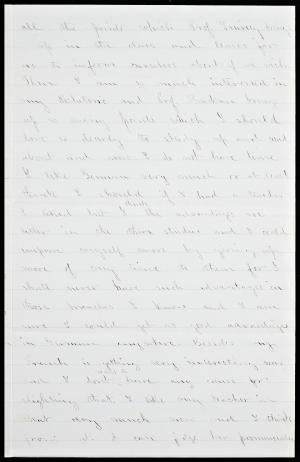 all the points which Prof. brings
up in the class and leaves for
us to inform ourselves about if we wish.
Then I am so much interested in
my and Prof. brings
up so many points which I should
love so dearly to study up and read
about and now I do not have time.
I like German very much or at least
think I should if I had a teacher
I liked but I think the advantages are
better in the three studies and I could
improve myself more by giving up
more of my time to them for I
shall never have such advantages in
these branches I know and I am
sure I could get as good advantages
in German anywhere. Besides my
French is getting very interesting now
and I don't have any cause for
delighting that I like my teacher in
that very much now and I think
I can her